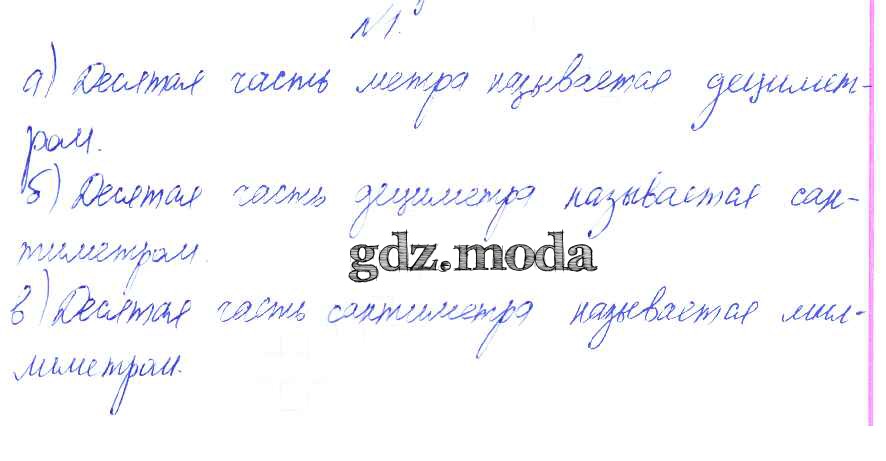 №1.
а) Десятая часть метра называется децимет-
ром.
б) Десятая часть дециметра называется сан-
тиметром.
gdz.moda
в) Десятая часть сантиметра называется мил-
лиметром.